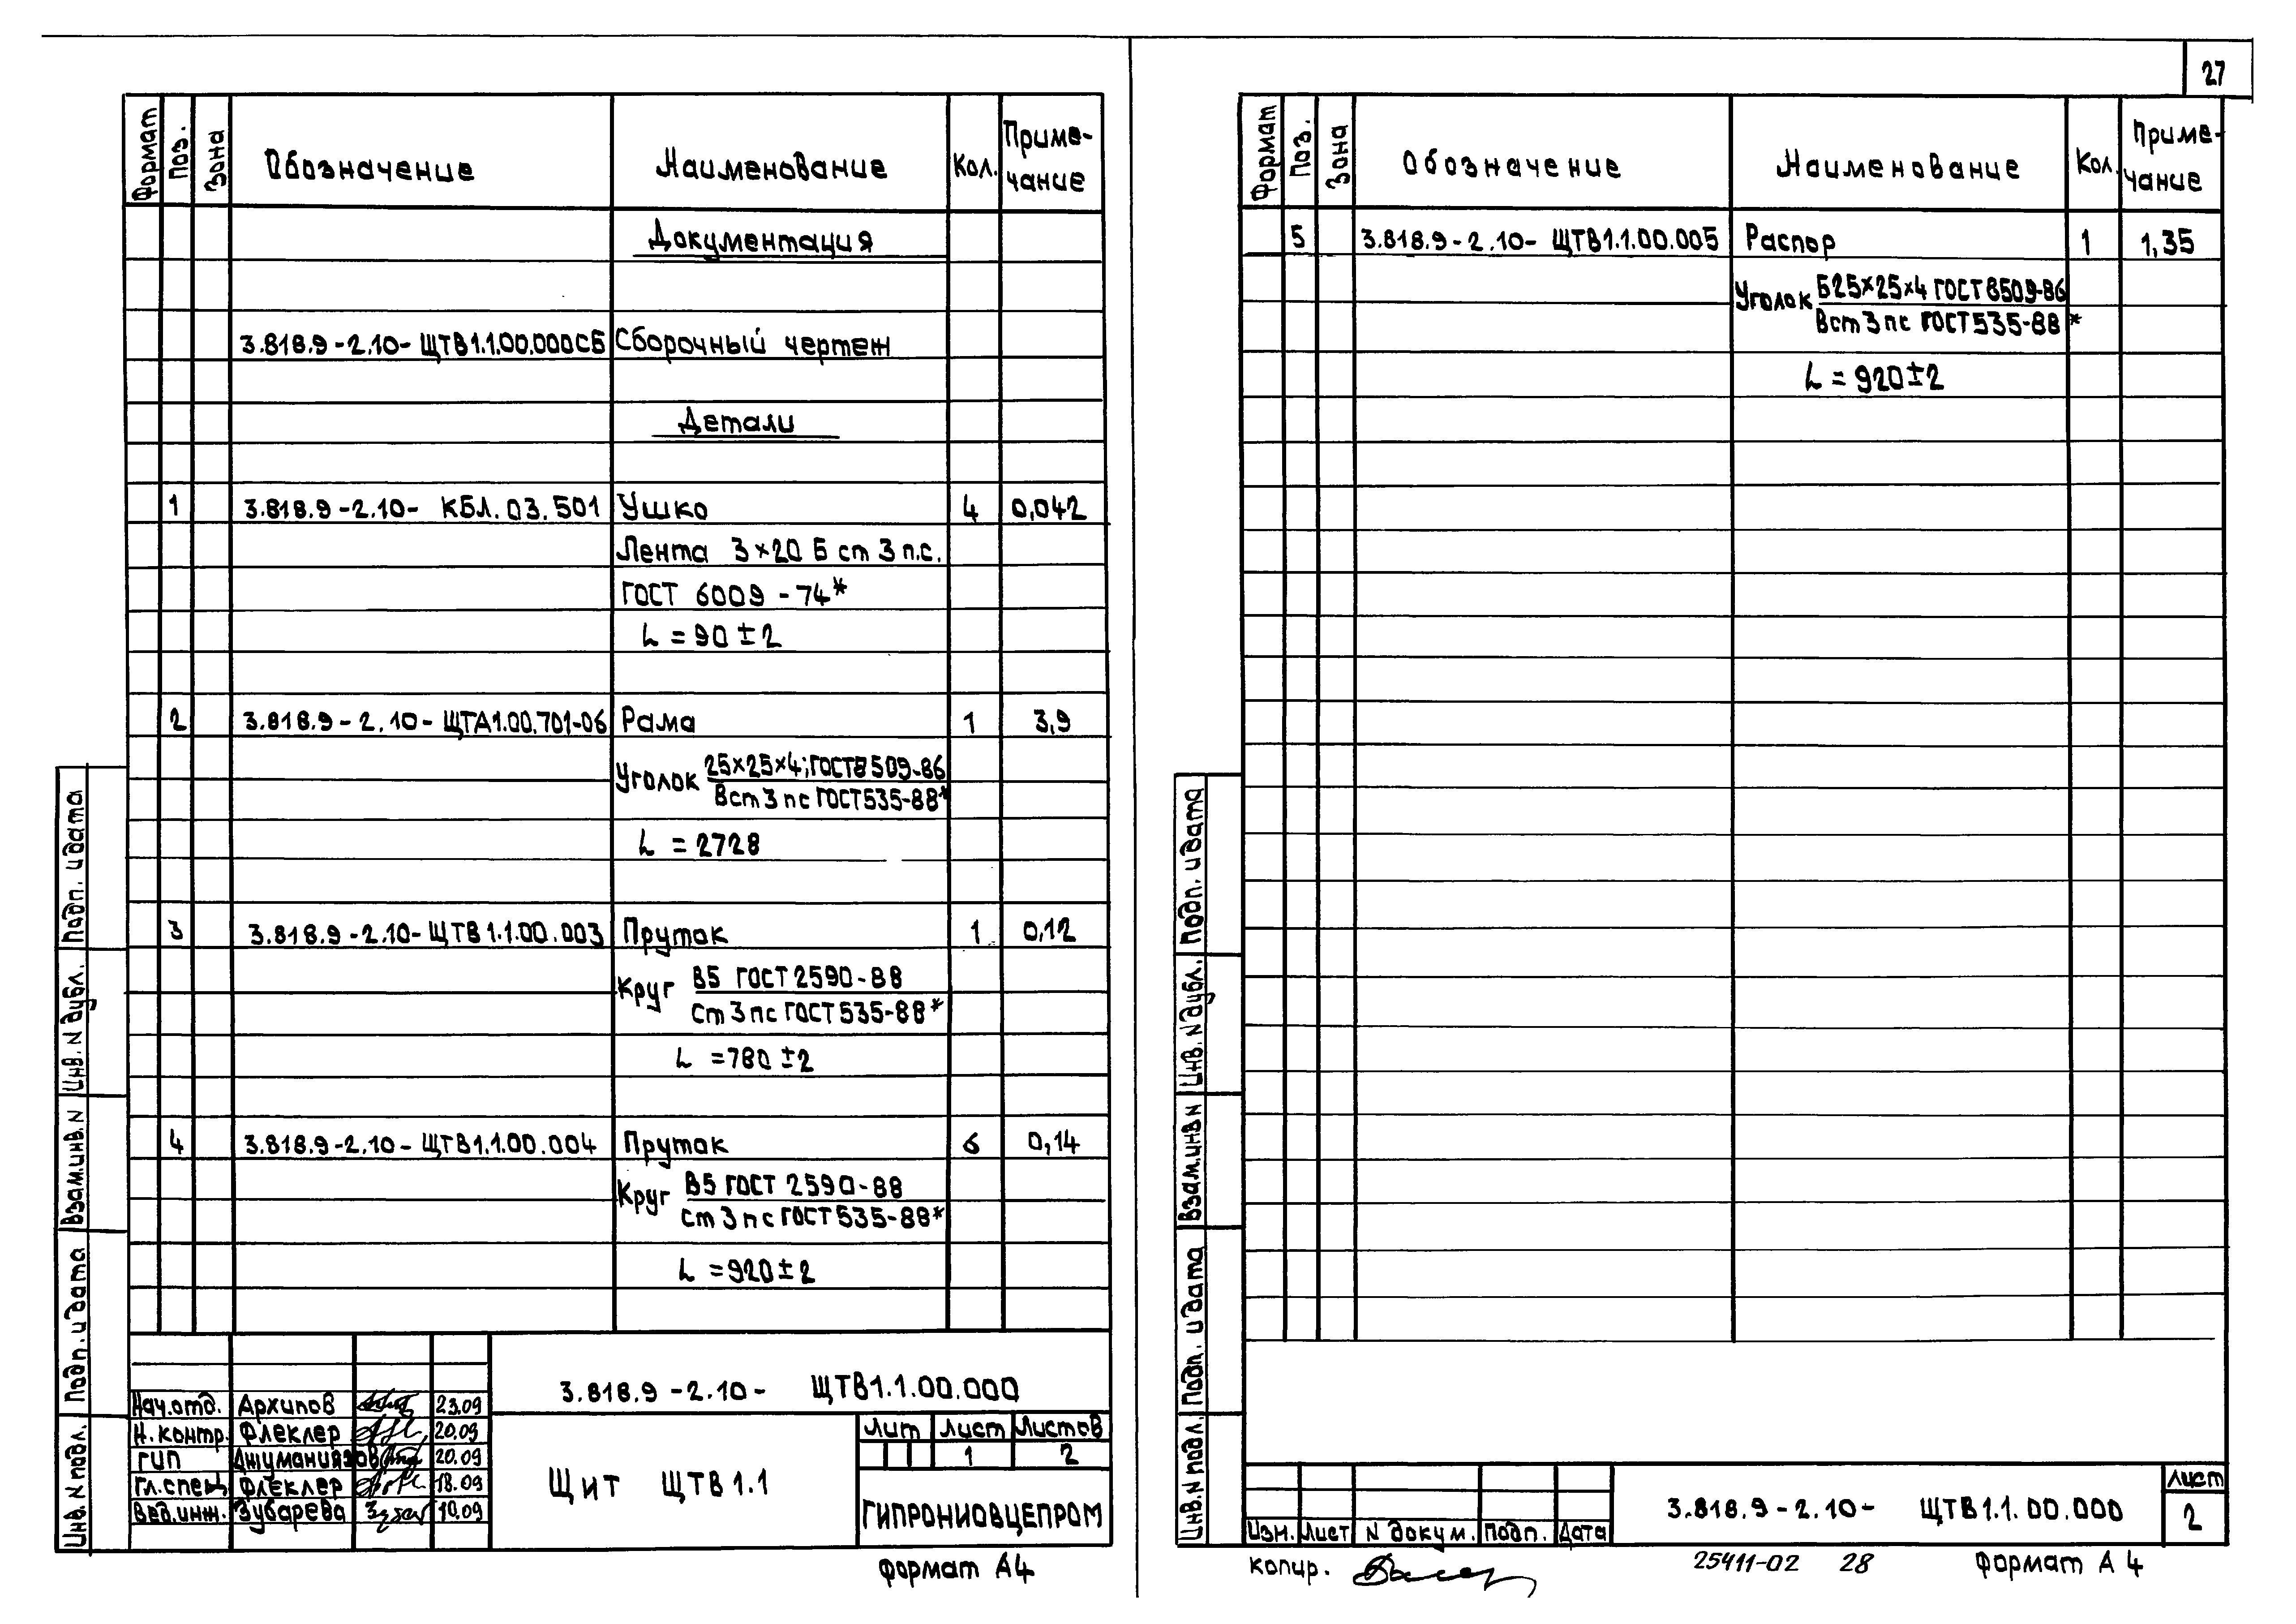 27
Формат Поз. Зона Обозначение Наименование Кол. Приме-
чание
Документация
3.818.9-2.10- ЩТВ1.1.00.000СБ Сборочный чертеж
Детали
1 3.818.9-2.10- КБЛ.03.501 Ушко 4 0,042
Лента 3×20 Б ст 3 п.с.
ГОСТ 6009-74*
L = 90 ± 2
2 3.818.9-2.10- ЩТА1.00.701-06 Рама 1 3,9
Уголок 25×25×4; ГОСТ 8509-86
Вст 3 пс ГОСТ 535-88*
L = 2728
3 3.818.9-2.10- ЩТВ1.1.00.003 Пруток 1 0,12
Круг В5 ГОСТ 2590-88
Ст 3 пс ГОСТ 535-88*
L = 780 ± 2
4 3.818.9-2.10- ЩТВ1.1.00.004 Пруток 6 0,14
Круг В5 ГОСТ 2590-88
Ст 3 пс ГОСТ 535-88*
L = 920 ± 2
Подп. и дата
Инв. N дубл.
Взам.инв. N
Подп. и дата
Инв. N подл.
3.818.9-2.10- ЩТВ1.1.00.000
Нач.отд. Архипов 23.09
Н. контр. Флеклер 20.09
ГИП Джуманиязов 20.09
Гл.спец. Флеклер 18.09
Вед.инж. Зубарева 10.09
Щит ЩТВ1.1
Лит Лист Листов
1 2
ГИПРОНИОВЦЕПРОМ
Формат А4
Формат Поз. Зона Обозначение Наименование Кол. Приме-
чание
5 3.818.9-2.10- ЩТВ1.1.00.005 Распор 1 1,35
Уголок Б25×25×4 ГОСТ 8509-86
Вст 3 пс ГОСТ 535-88*
L = 920 ± 2
Подп. и дата
Инв. N дубл.
Взам.инв. N
Подп. и дата
Инв. N подл.
Изм. Лист N докум. Подп. Дата
3.818.9-2.10- ЩТВ1.1.00.000
Лист
2
Копир.
25411-02 28
Формат А4